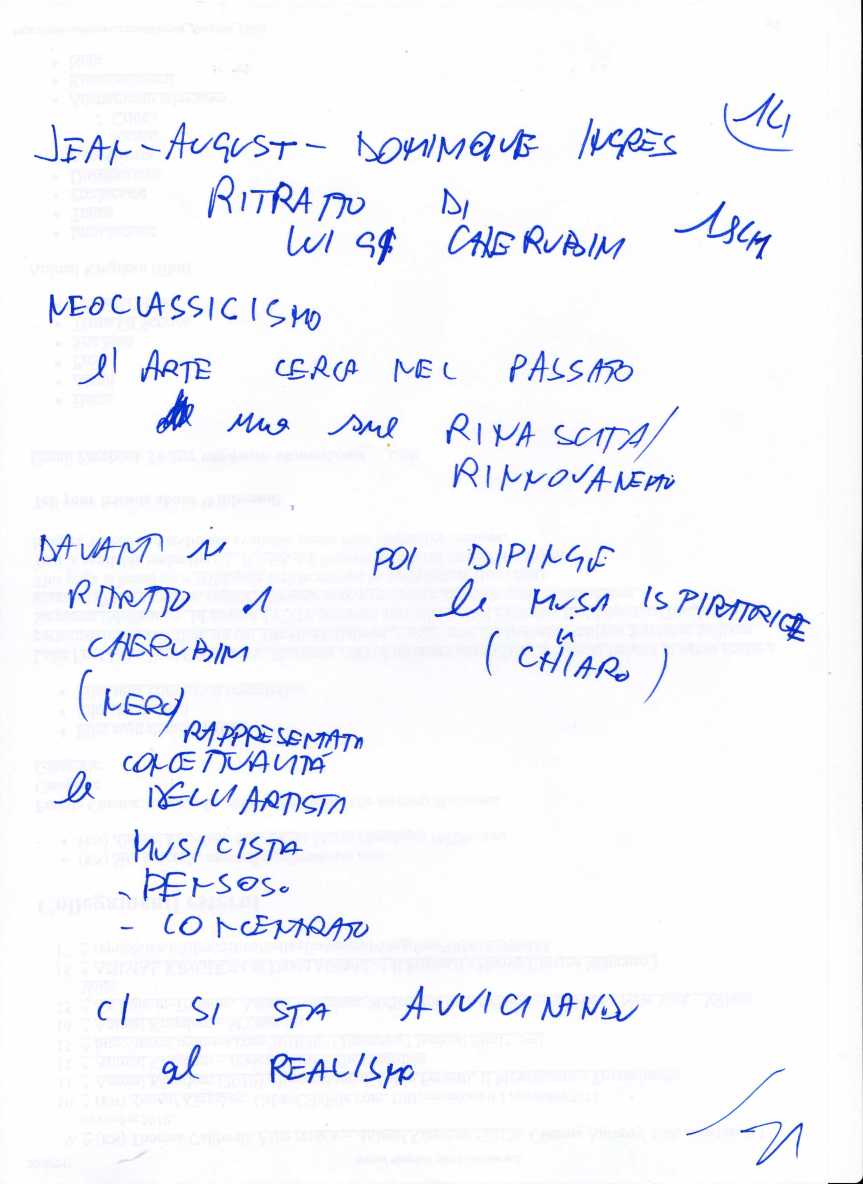 14
JEAN-AUGUST-DOMINIQUE INGRES
RITRATTO DI
LUIGI CHERUBINI 1841
NEOCLASSICISMO
l'ARTE CERCA NEL PASSATO
una sua RINASCITA/
RINNOVAMENTO
DAVANTI
RITRATTO
CHERUBINI
(NERO)
RAPPRESENTATA
la CONCETTUALITÀ
DELL'ARTISTA
MUSICISTA
- PENSOSO
- CONCENTRATO
POI DIPINGE
la MUSA ISPIRATRICE
(in CHIARO)
CI SI STA AVVICINANDO
al REALISMO